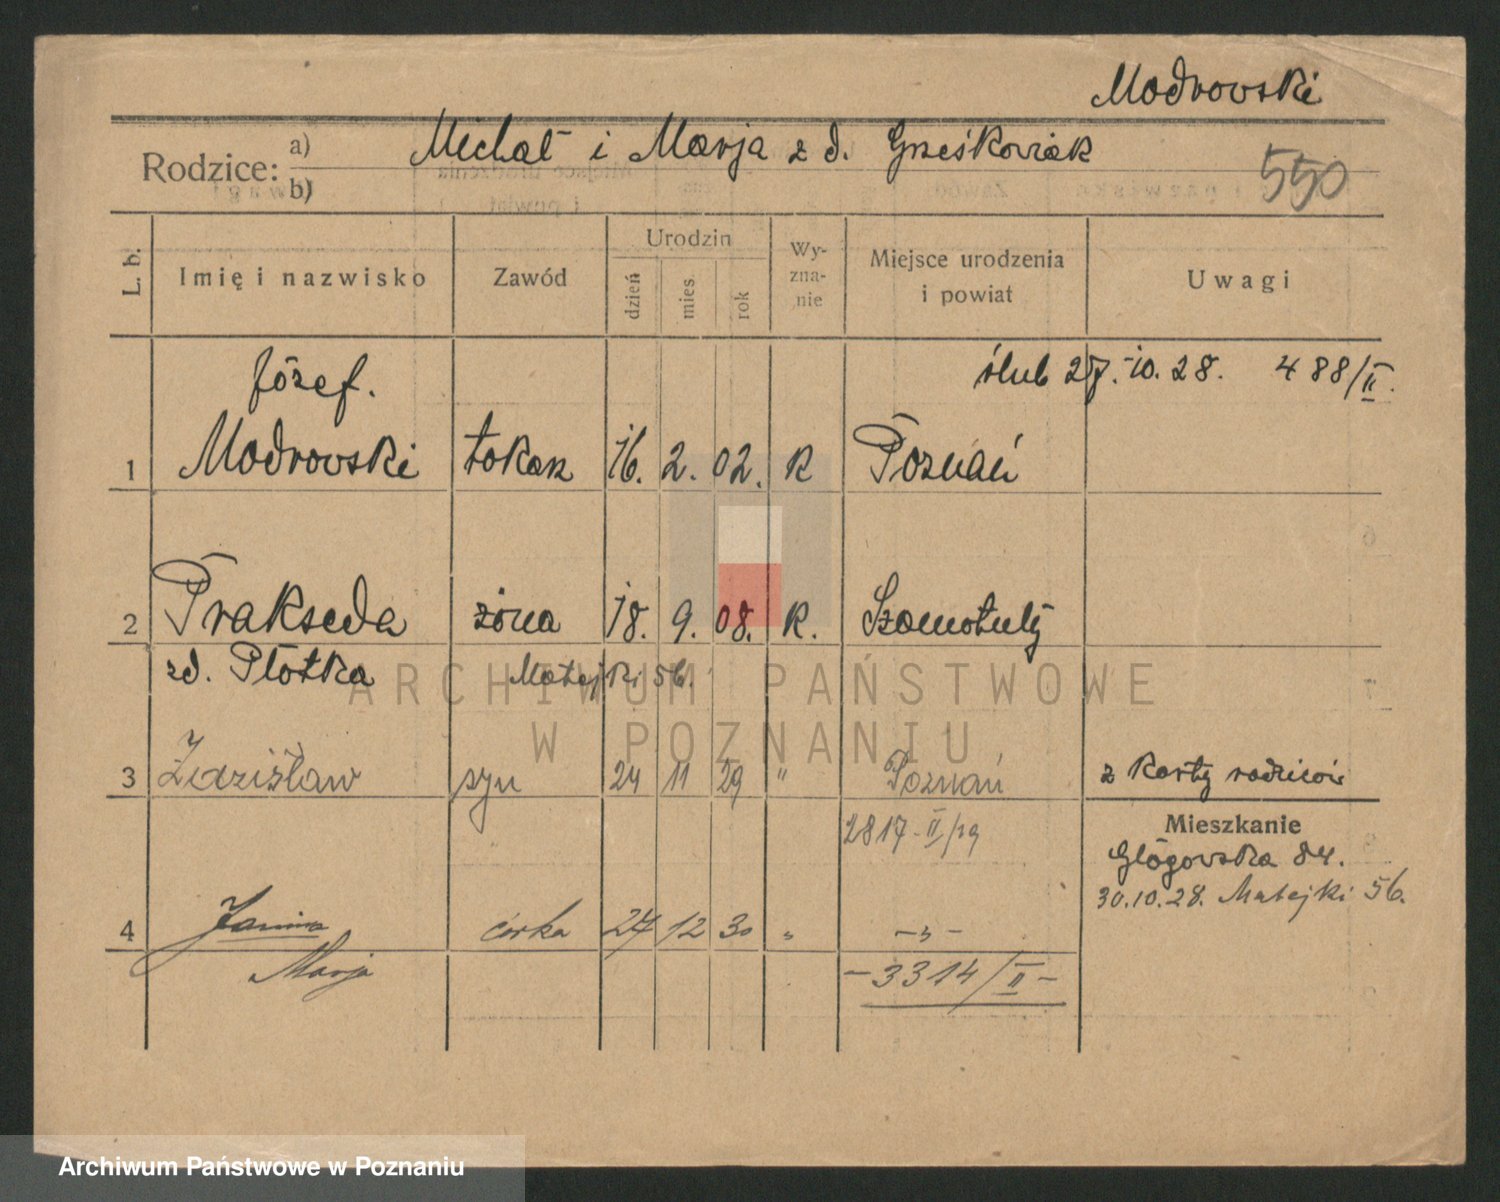 Modrowski
Rodzice: a) b) Michał i Marja z d. Grześkowiak
550
L. b. Imię i nazwisko Zawód Urodzin dzień mies rok Wy-zna-nie Miejsce urodzenia i powiat Uwagi
Józef. ślub 27.10.28. 488/II.
1 Modrowski tokarz 16. 2. 02. k Poznań
2 Prakseda żona 18. 9. 08. k. Szamotuły
zd. Plotka Matejki 56.
3 Zdzisław syn 24 11 29 " Poznań z karty rodziców
2817-II/29
Mieszkanie
Głogowska 84.
30.10.28. Matejki 56.
4 Janina córka 27 12 30 " -„-
Marja -3314/II-
ARCHIWUM PAŃSTWOWE
W POZNANIU
Archiwum Państwowe w Poznaniu